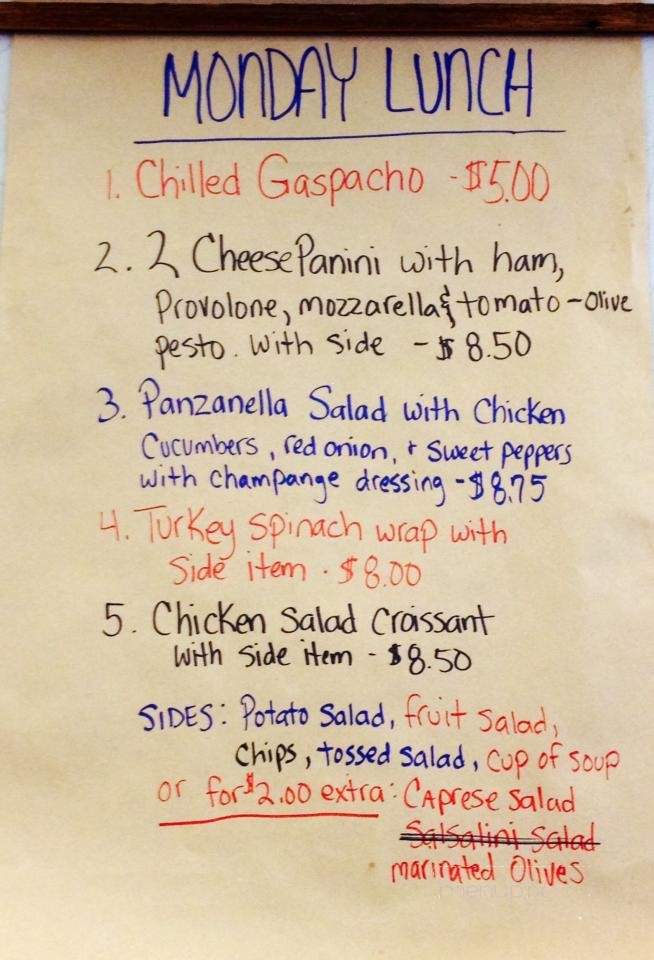 MONDAY LUNCH
1. Chilled Gaspacho - $5.00
2. 2 Cheese Panini with ham,
Provolone, mozzarella & tomato - olive
pesto. With side - $8.50
3. Panzanella Salad with Chicken
Cucumbers, red onion, + sweet peppers
with champange dressing - $8.75
4. Turkey spinach wrap with
Side item - $8.00
5. Chicken Salad Croissant
With side item - $8.50
SIDES: Potato Salad, fruit salad,
Chips, tossed salad, cup of soup
or for $2.00 extra: Caprese Salad
Salsalini Salad
marinated Olives